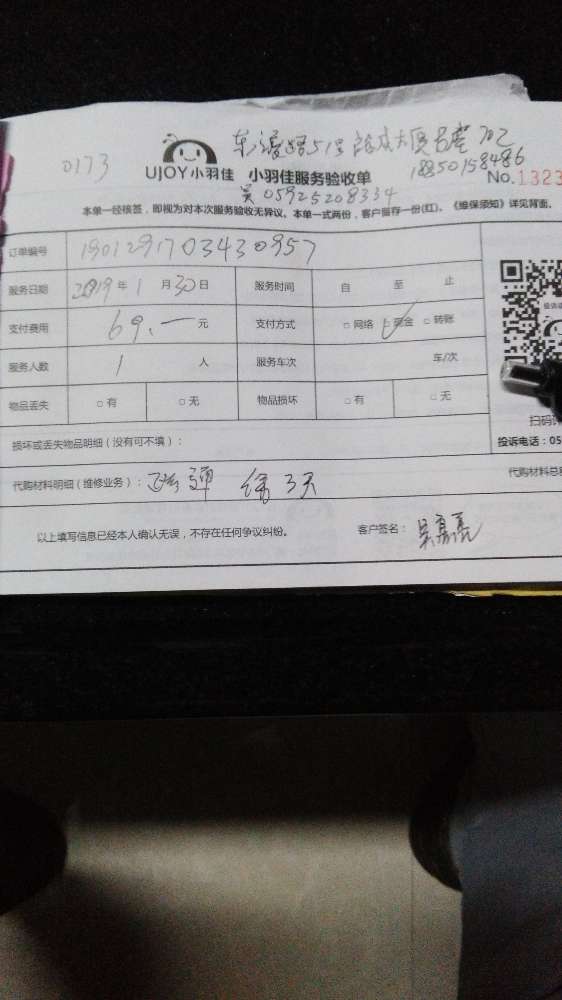 0173
UJOY小羽佳 小羽佳服务验收单
18850158486
No.1323
吴 05925208334
本单一经核签，即视为对本次服务验收无异议。本单一式两份，客户留存一份(红)。《维保须知》详见背面。
订单编号 190129170343 0957
服务日期 2019年1月30日 服务时间 自 至 止
支付费用 69.— 元 支付方式 □网络 □现金 □转账
服务人数 1 人 服务车次 车/次
物品丢失 □有 □无 物品损坏 □有 □无
扫码
损坏或丢失物品明细（没有可不填）：
投诉电话：05
代购材料明细（维修业务）：
代购材料总
以上填写信息已经本人确认无误，不存在任何争议纠纷。 客户签名：